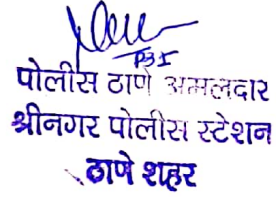 PSI
पोलीस ठाणे अमलदार
श्रीनगर पोलीस स्टेशन
ठाणे शहर